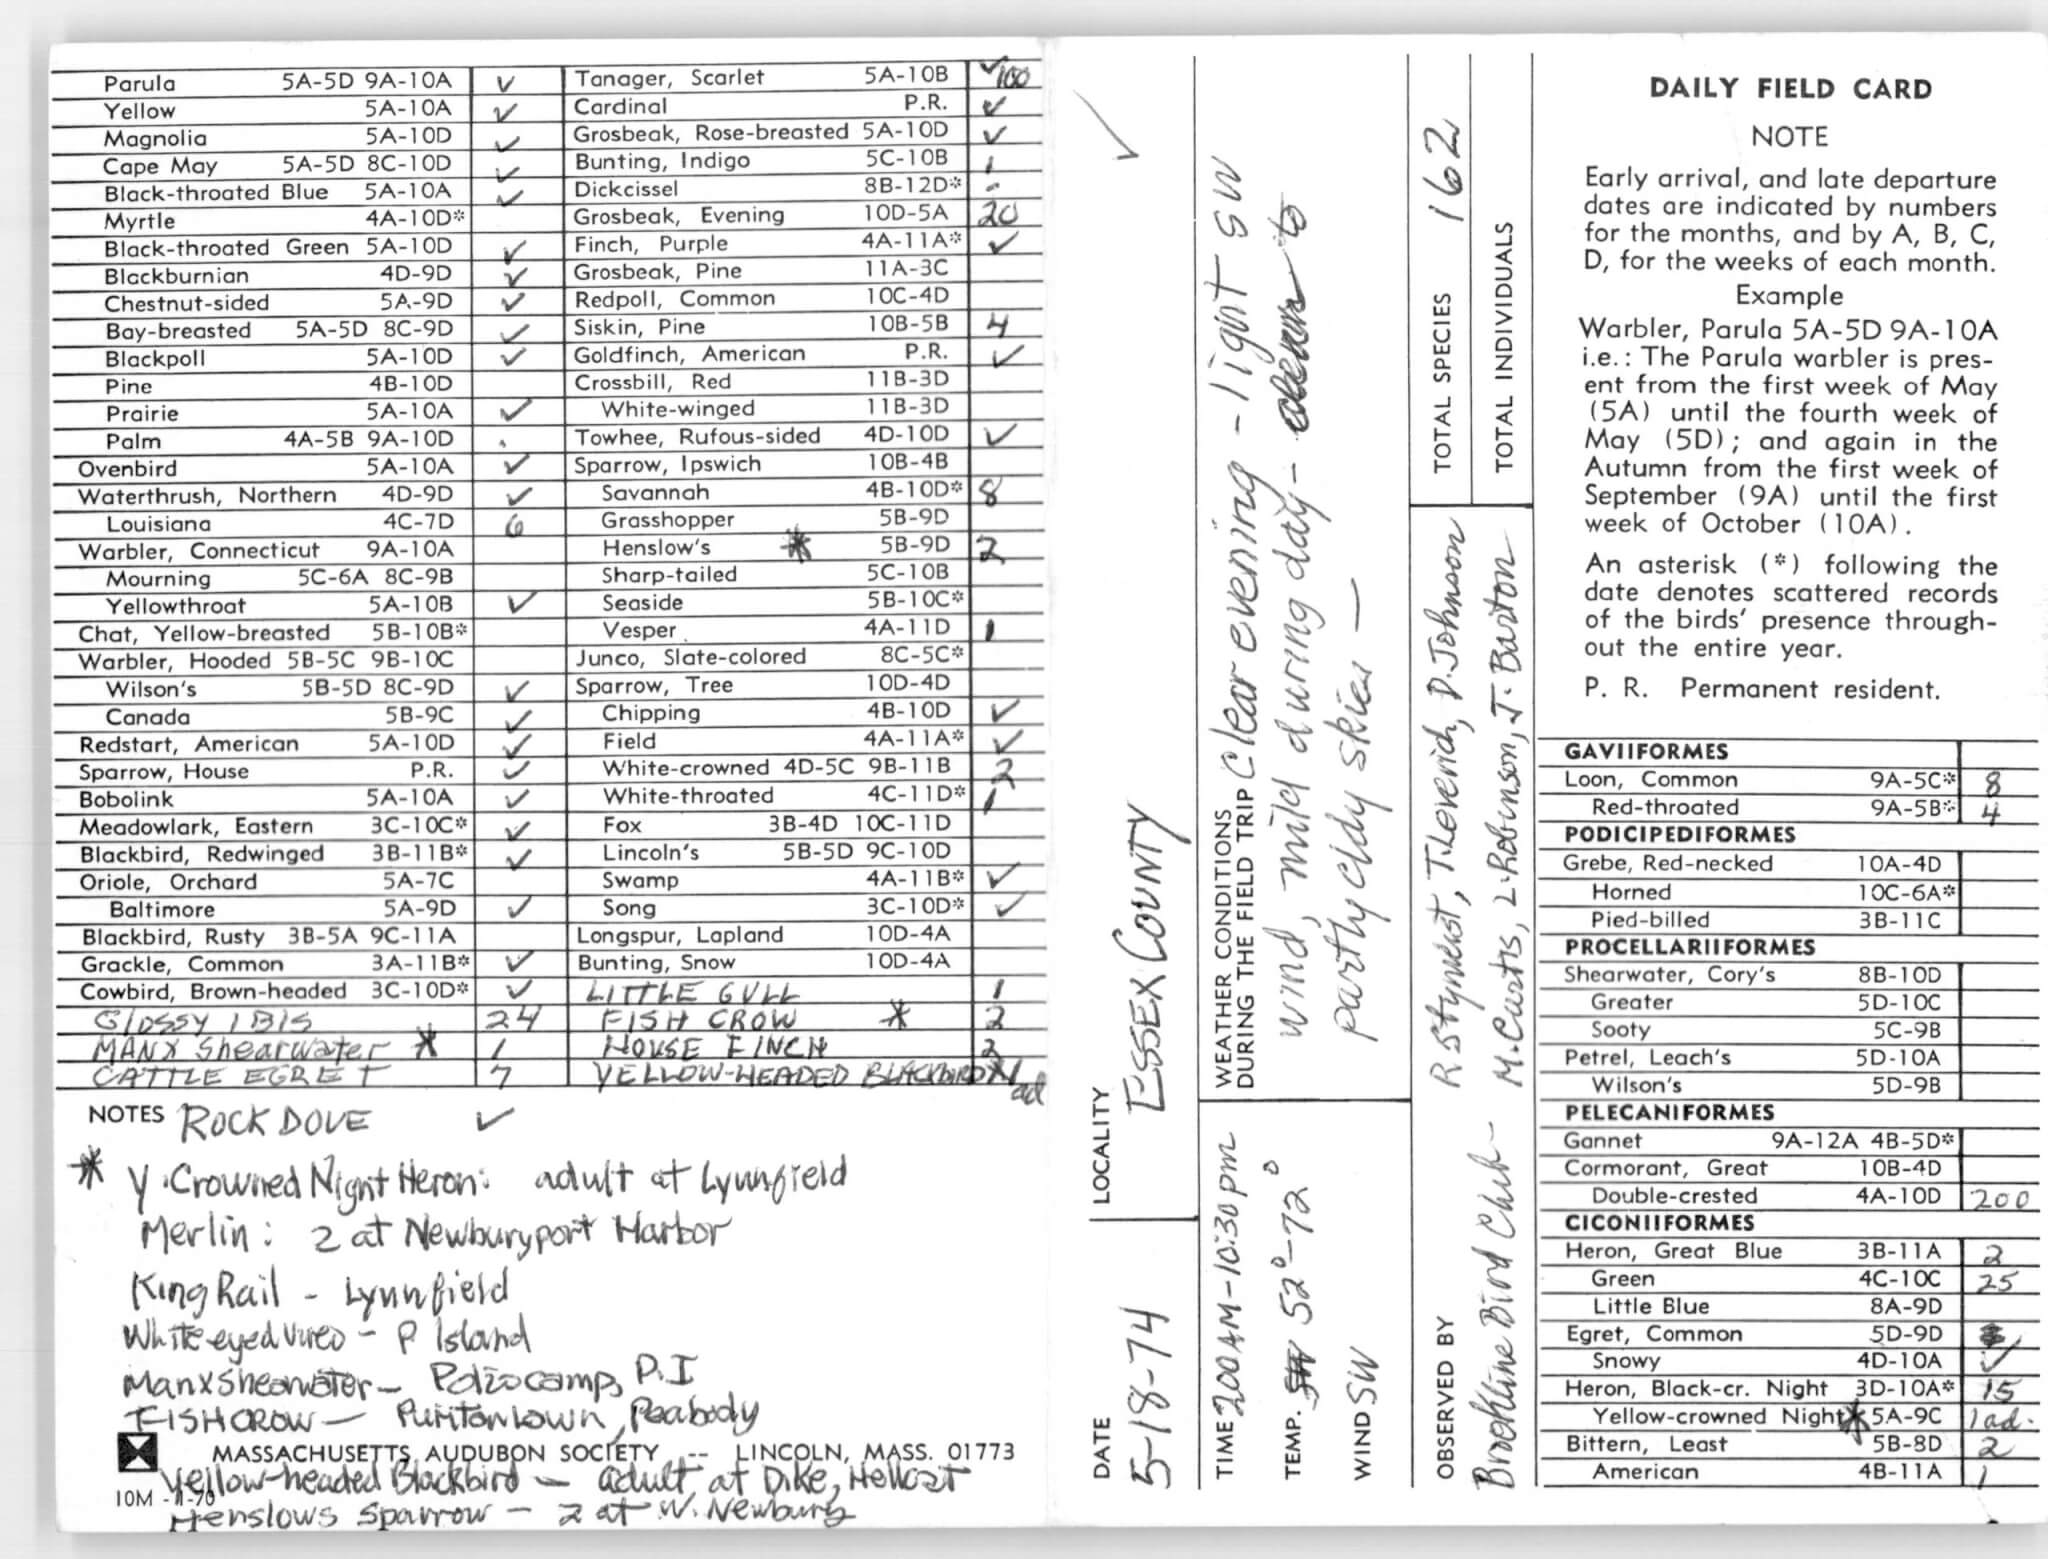 Parula 5A-5D 9A-10A ✓
Yellow 5A-10A ✓
Magnolia 5A-10D ✓
Cape May 5A-5D 8C-10D ✓
Black-throated Blue 5A-10A ✓
Myrtle 4A-10D*
Black-throated Green 5A-10D ✓
Blackburnian 4D-9D ✓
Chestnut-sided 5A-9D ✓
Bay-breasted 5A-5D 8C-9D ✓
Blackpoll 5A-10D ✓
Pine 4B-10D
Prairie 5A-10A ✓
Palm 4A-5B 9A-10D
Ovenbird 5A-10A ✓
Waterthrush, Northern 4D-9D ✓
Louisiana 4C-7D 6
Warbler, Connecticut 9A-10A
Mourning 5C-6A 8C-9B
Yellowthroat 5A-10B ✓
Chat, Yellow-breasted 5B-10B*
Warbler, Hooded 5B-5C 9B-10C
Wilson's 5B-5D 8C-9D ✓
Canada 5B-9C ✓
Redstart, American 5A-10D ✓
Sparrow, House P.R. ✓
Bobolink 5A-10A ✓
Meadowlark, Eastern 3C-10C* ✓
Blackbird, Redwinged 3B-11B* ✓
Oriole, Orchard 5A-7C
Baltimore 5A-9D ✓
Blackbird, Rusty 3B-5A 9C-11A
Grackle, Common 3A-11B* ✓
Cowbird, Brown-headed 3C-10D* ✓
GLOSSY IBIS 24
MANX Shearwater * 1
CATTLE EGRET 7
Tanager, Scarlet 5A-10B ✓100
Cardinal P.R. ✓
Grosbeak, Rose-breasted 5A-10D ✓
Bunting, Indigo 5C-10B 1
Dickcissel 8B-12D*
Grosbeak, Evening 10D-5A 20
Finch, Purple 4A-11A* ✓
Grosbeak, Pine 11A-3C
Redpoll, Common 10C-4D
Siskin, Pine 10B-5B 4
Goldfinch, American P.R. ✓
Crossbill, Red 11B-3D
White-winged 11B-3D
Towhee, Rufous-sided 4D-10D ✓
Sparrow, Ipswich 10B-4B
Savannah 4B-10D* 8
Grasshopper 5B-9D
Henslow's * 5B-9D 2
Sharp-tailed 5C-10B
Seaside 5B-10C*
Vesper 4A-11D 1
Junco, Slate-colored 8C-5C*
Sparrow, Tree 10D-4D
Chipping 4B-10D ✓
Field 4A-11A* ✓
White-crowned 4D-5C 9B-11B 2
White-throated 4C-11D* 1
Fox 3B-4D 10C-11D
Lincoln's 5B-5D 9C-10D
Swamp 4A-11B* ✓
Song 3C-10D* ✓
Longspur, Lapland 10D-4A
Bunting, Snow 10D-4A
LITTLE GULL 1
FISH CROW * 2
HOUSE FINCH 2
YELLOW-HEADED BLACKBIRD * 1 ad
NOTES ROCK DOVE ✓
* Y. Crowned Night Heron: adult at Lynnfield
Merlin: 2 at Newburyport Harbor
King Rail - Lynnfield
White eyed vireo - P Island
Manx Shearwater - camp, P.I
FISH CROW - Peabody
MASSACHUSETTS AUDUBON SOCIETY -- LINCOLN, MASS. 01773
Yellow-headed Blackbird - adult at Dike, Hellcat
10M -11-70
Henslows Sparrow - 2 at W. Newbury
DATE 5-18-74
LOCALITY ESSEX COUNTY ✓
TIME 200AM-10:30pm
TEMP. 52°-72°
WIND SW
WEATHER CONDITIONS
DURING THE FIELD TRIP Clear evening - light SW
wind, mild during day - to
partly cldy skies -
OBSERVED BY R Stymeist, T. Leverich, D. Johnson
Brookline Bird Club - M. Curtis, L. Robinson, J. Barton
TOTAL SPECIES 162
TOTAL INDIVIDUALS
DAILY FIELD CARD
NOTE
Early arrival, and late departure
dates are indicated by numbers
for the months, and by A, B, C,
D, for the weeks of each month.
Example
Warbler, Parula 5A-5D 9A-10A
i.e.: The Parula warbler is pres-
ent from the first week of May
(5A) until the fourth week of
May (5D); and again in the
Autumn from the first week of
September (9A) until the first
week of October (10A).
An asterisk (*) following the
date denotes scattered records
of the birds' presence through-
out the entire year.
P. R. Permanent resident.
GAVIIFORMES
Loon, Common 9A-5C* 8
Red-throated 9A-5B* 4
PODICIPEDIFORMES
Grebe, Red-necked 10A-4D
Horned 10C-6A*
Pied-billed 3B-11C
PROCELLARIIFORMES
Shearwater, Cory's 8B-10D
Greater 5D-10C
Sooty 5C-9B
Petrel, Leach's 5D-10A
Wilson's 5D-9B
PELECANIFORMES
Gannet 9A-12A 4B-5D*
Cormorant, Great 10B-4D
Double-crested 4A-10D 200
CICONIIFORMES
Heron, Great Blue 3B-11A 2
Green 4C-10C 25
Little Blue 8A-9D
Egret, Common 5D-9D
Snowy 4D-10A ✓
Heron, Black-cr. Night 3D-10A* 15
Yellow-crowned Night * 5A-9C 1 ad.
Bittern, Least 5B-8D 2
American 4B-11A 1